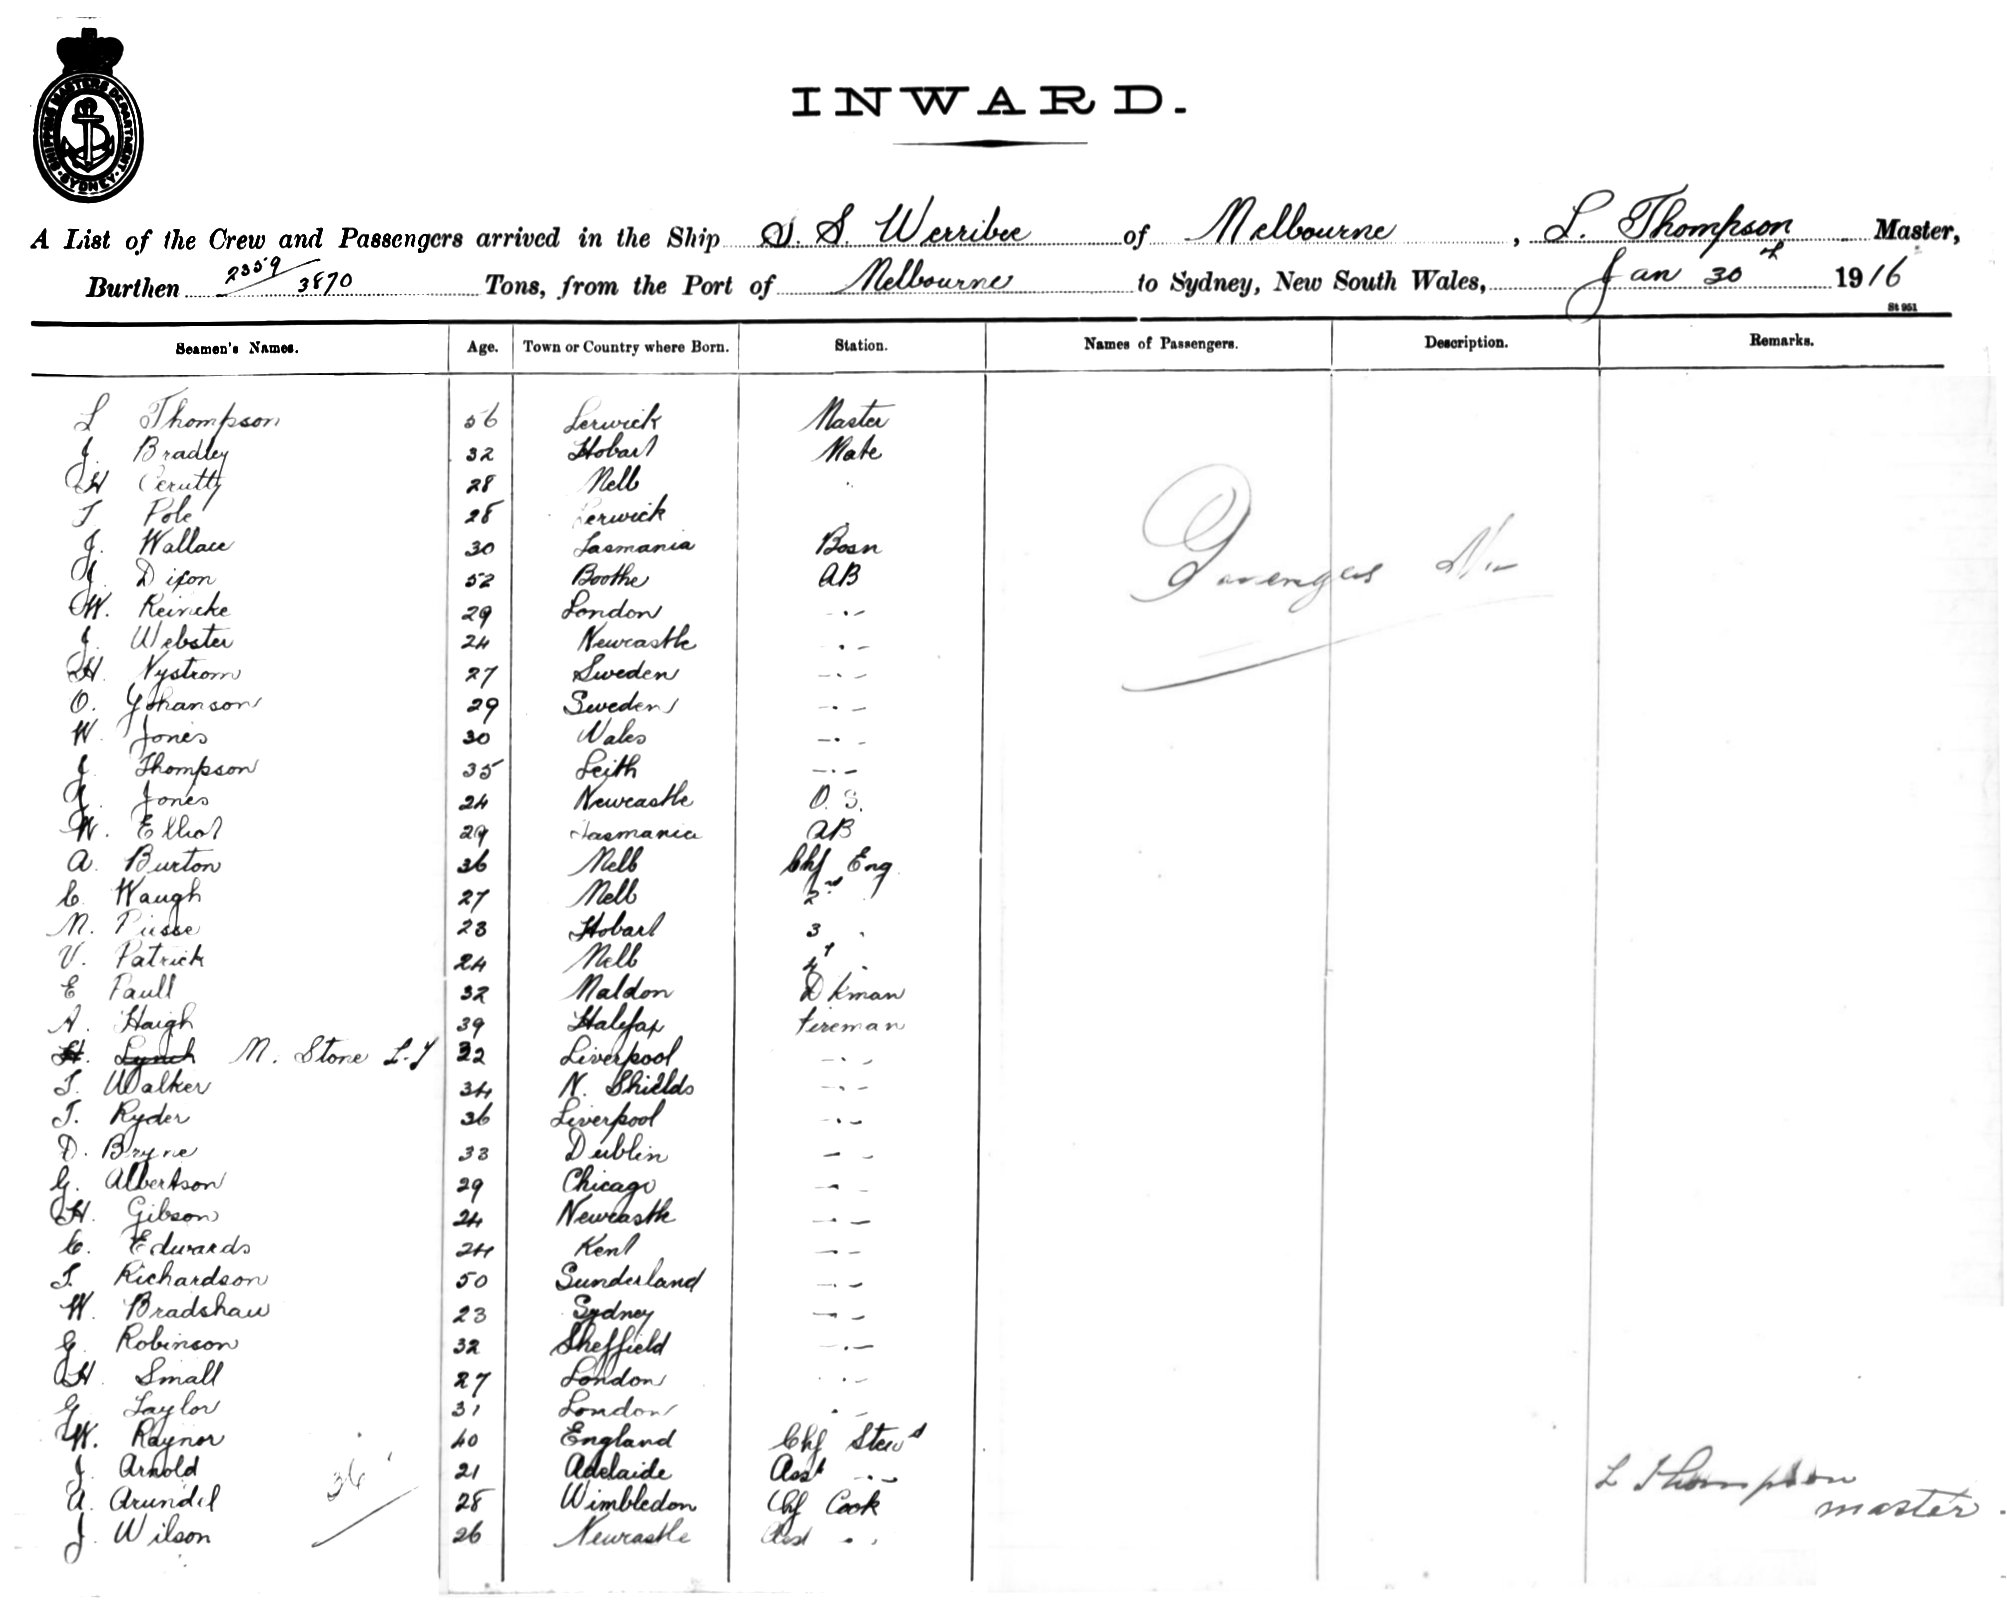 SHIPPING MASTERS DEPARTMENT SYDNEY
INWARD.
A List of the Crew and Passengers arrived in the Ship S. S. Werribee of Melbourne, L. Thompson Master,
Burthen 2359/3870 Tons, from the Port of Melbourne to Sydney, New South Wales, Jan 30th 1916
St 951
Seamen's Names. Age. Town or Country where Born. Station. Names of Passengers. Description. Remarks.
L Thompson 56 Lerwick Master
J. Bradley 32 Hobart Mate
H Cerutty 28 Melb
T Pole 28 Lerwick
J. Wallace 30 Tasmania Bosn
J Dixon 52 Boothe AB
W. Reincke 29 London -.-
J. Webster 24 Newcastle -.-
H. Nystrom 27 Sweden -.-
O. Yohanson 29 Sweden -.-
W. Jones 30 Wales -.-
J Thompson 35 Leith -.-
J. Jones 24 Newcastle O. S.
W. Elliot 29 Tasmania AB
A. Burton 36 Melb Chf Eng
C. Waugh 27 Melb 2nd
M. 23 Hobart 3
V. Patrick 24 Melb 4
E Paull 32 Maldon Dkman
A. Haigh 39 Halifax Fireman
H. Lynch M. Stone L.T 32 Liverpool -.-
T. Walker 34 N. Shields -.-
T. Ryder 36 Liverpool -.-
D. Bryne 33 Dublin - -
G. Albertson 29 Chicago - -
H. Gibson 24 Newcastle - -
C. Edwards 24 Kent - -
T. Richardson 50 Sunderland - -
W. Bradshaw 23 Sydney - -
G. Robinson 32 Sheffield -.-
H. Small 27 London -.-
G. Taylor 31 London . -
W. Raynor 40 England Chf Stewd
J. Arnold 21 Adelaide Asst - -
A. Arundel 28 Wimbledon Chf Cook
J. Wilson 26 Newcastle Asst . .
36
Passengers Nil
L Thompson
master.